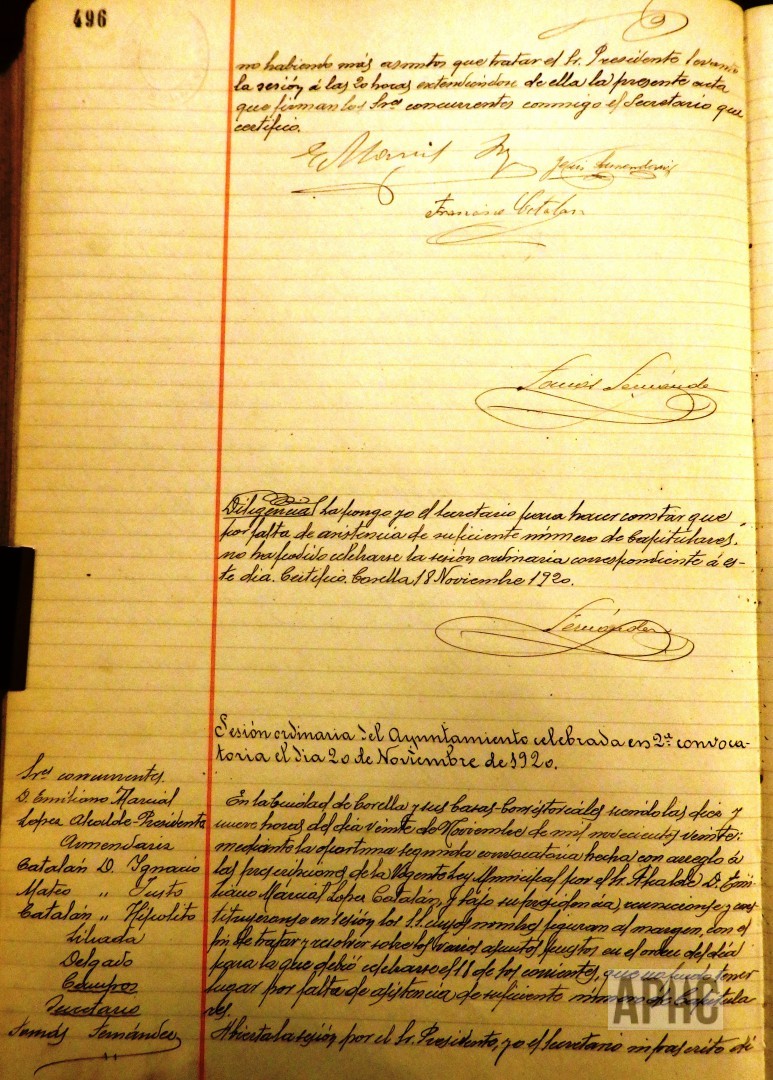 496
no habiendo más asuntos que tratar el Sr. Presidente levantó
la sesión á las 20 horas extendiéndose de ella la presente acta
que firman los Sres concurrentes conmigo el Secretario que
certifico.
E Marcial
Jesús Armendariz
Francisco Catalan
Tomás Fernández
Diligencia La pongo yo el Secretario para hacer constar que
por falta de asistencia de suficiente número de Capitulares,
no ha podido celebrarse la sesión ordinaria correspondiente á es-
te dia. Certifico. Corella, 18 Noviembre 1920.
Fernández
Sesión ordinaria del Ayuntamiento celebrada en 2ª convoca-
toria el dia 20 de Noviembre de 1920.
Sres concurrentes
D. Emiliano Marcial
Lopez Alcalde-Presidente
Armendariz
Catalán D. Ignacio
Mateo " Justo
Catalán " Hipólito
Delgado
Campos
Secretario
Tomás Fernández
En la Ciudad de Corella y sus Casas-Consistoriales siendo las diez y
nueve horas del dia veinte de Noviembre de mil novecientos veinte:
mediante la oportuna segunda convocatoria hecha con arreglo á
las prescripciones de la vigente Ley Municipal por el Sr. Alcalde D. Emi-
liano Marcial Lopez Catalán, y bajo su presidencia, reunieronse y cons-
tituyeronse en sesión los S.S. cuyos nombres figuran al margen, con el
fin de tratar y resolver sobre los varios asuntos puestos en el orden del dia
para la que debió celebrarse el 18 de los corrientes, que no pudo tener
lugar por falta de asistencia de suficiente número de Capitula-
res.
Abierta la sesión por el Sr. Presidente, yo el Secretario infrascrito di
APHC